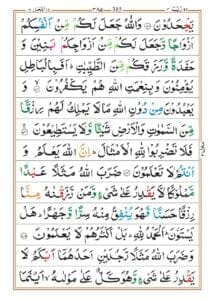 يَجْحَدُوْنَ ۝ وَاللّٰهُ جَعَلَ لَكُمْ مِّنْ اَنْفُسِكُمْ
اَزْوَاجًا وَّجَعَلَ لَكُمْ مِّنْ اَزْوَاجِكُمْ بَنِيْنَ وَ
حَفَدَةً وَّرَزَقَكُمْ مِّنَ الطَّيِّبٰتِ ؕ اَفَبِالْبَاطِلِ
يُؤْمِنُوْنَ وَبِنِعْمَتِ اللّٰهِ هُمْ يَكْفُرُوْنَ ۝ وَ
يَعْبُدُوْنَ مِنْ دُوْنِ اللّٰهِ مَا لَا يَمْلِكُ لَهُمْ رِزْقًا
مِّنَ السَّمٰوٰتِ وَالْاَرْضِ شَيْـًٔا وَّلَا يَسْتَطِيْعُوْنَ ۝
فَلَا تَضْرِبُوْا لِلّٰهِ الْاَمْثَالَ ؕ اِنَّ اللّٰهَ يَعْلَمُ وَ
اَنْتُمْ لَا تَعْلَمُوْنَ ۝ ضَرَبَ اللّٰهُ مَثَلًا عَبْدًا
مَّمْلُوْكًا لَّا يَقْدِرُ عَلٰى شَيْءٍ وَّمَنْ رَّزَقْنٰهُ مِنَّا
رِزْقًا حَسَنًا فَهُوَ يُنْفِقُ مِنْهُ سِرًّا وَّجَهْرًا ؕ هَلْ
يَسْتَوٗنَ ؕ اَلْحَمْدُ لِلّٰهِ ؕ بَلْ اَكْثَرُهُمْ لَا يَعْلَمُوْنَ ۝
وَضَرَبَ اللّٰهُ مَثَلًا رَّجُلَيْنِ اَحَدُهُمَاۤ اَبْكَمُ لَا
يَقْدِرُ عَلٰى شَيْءٍ وَّهُوَ كَلٌّ عَلٰى مَوْلٰىهُ ۙ اَيْنَمَا